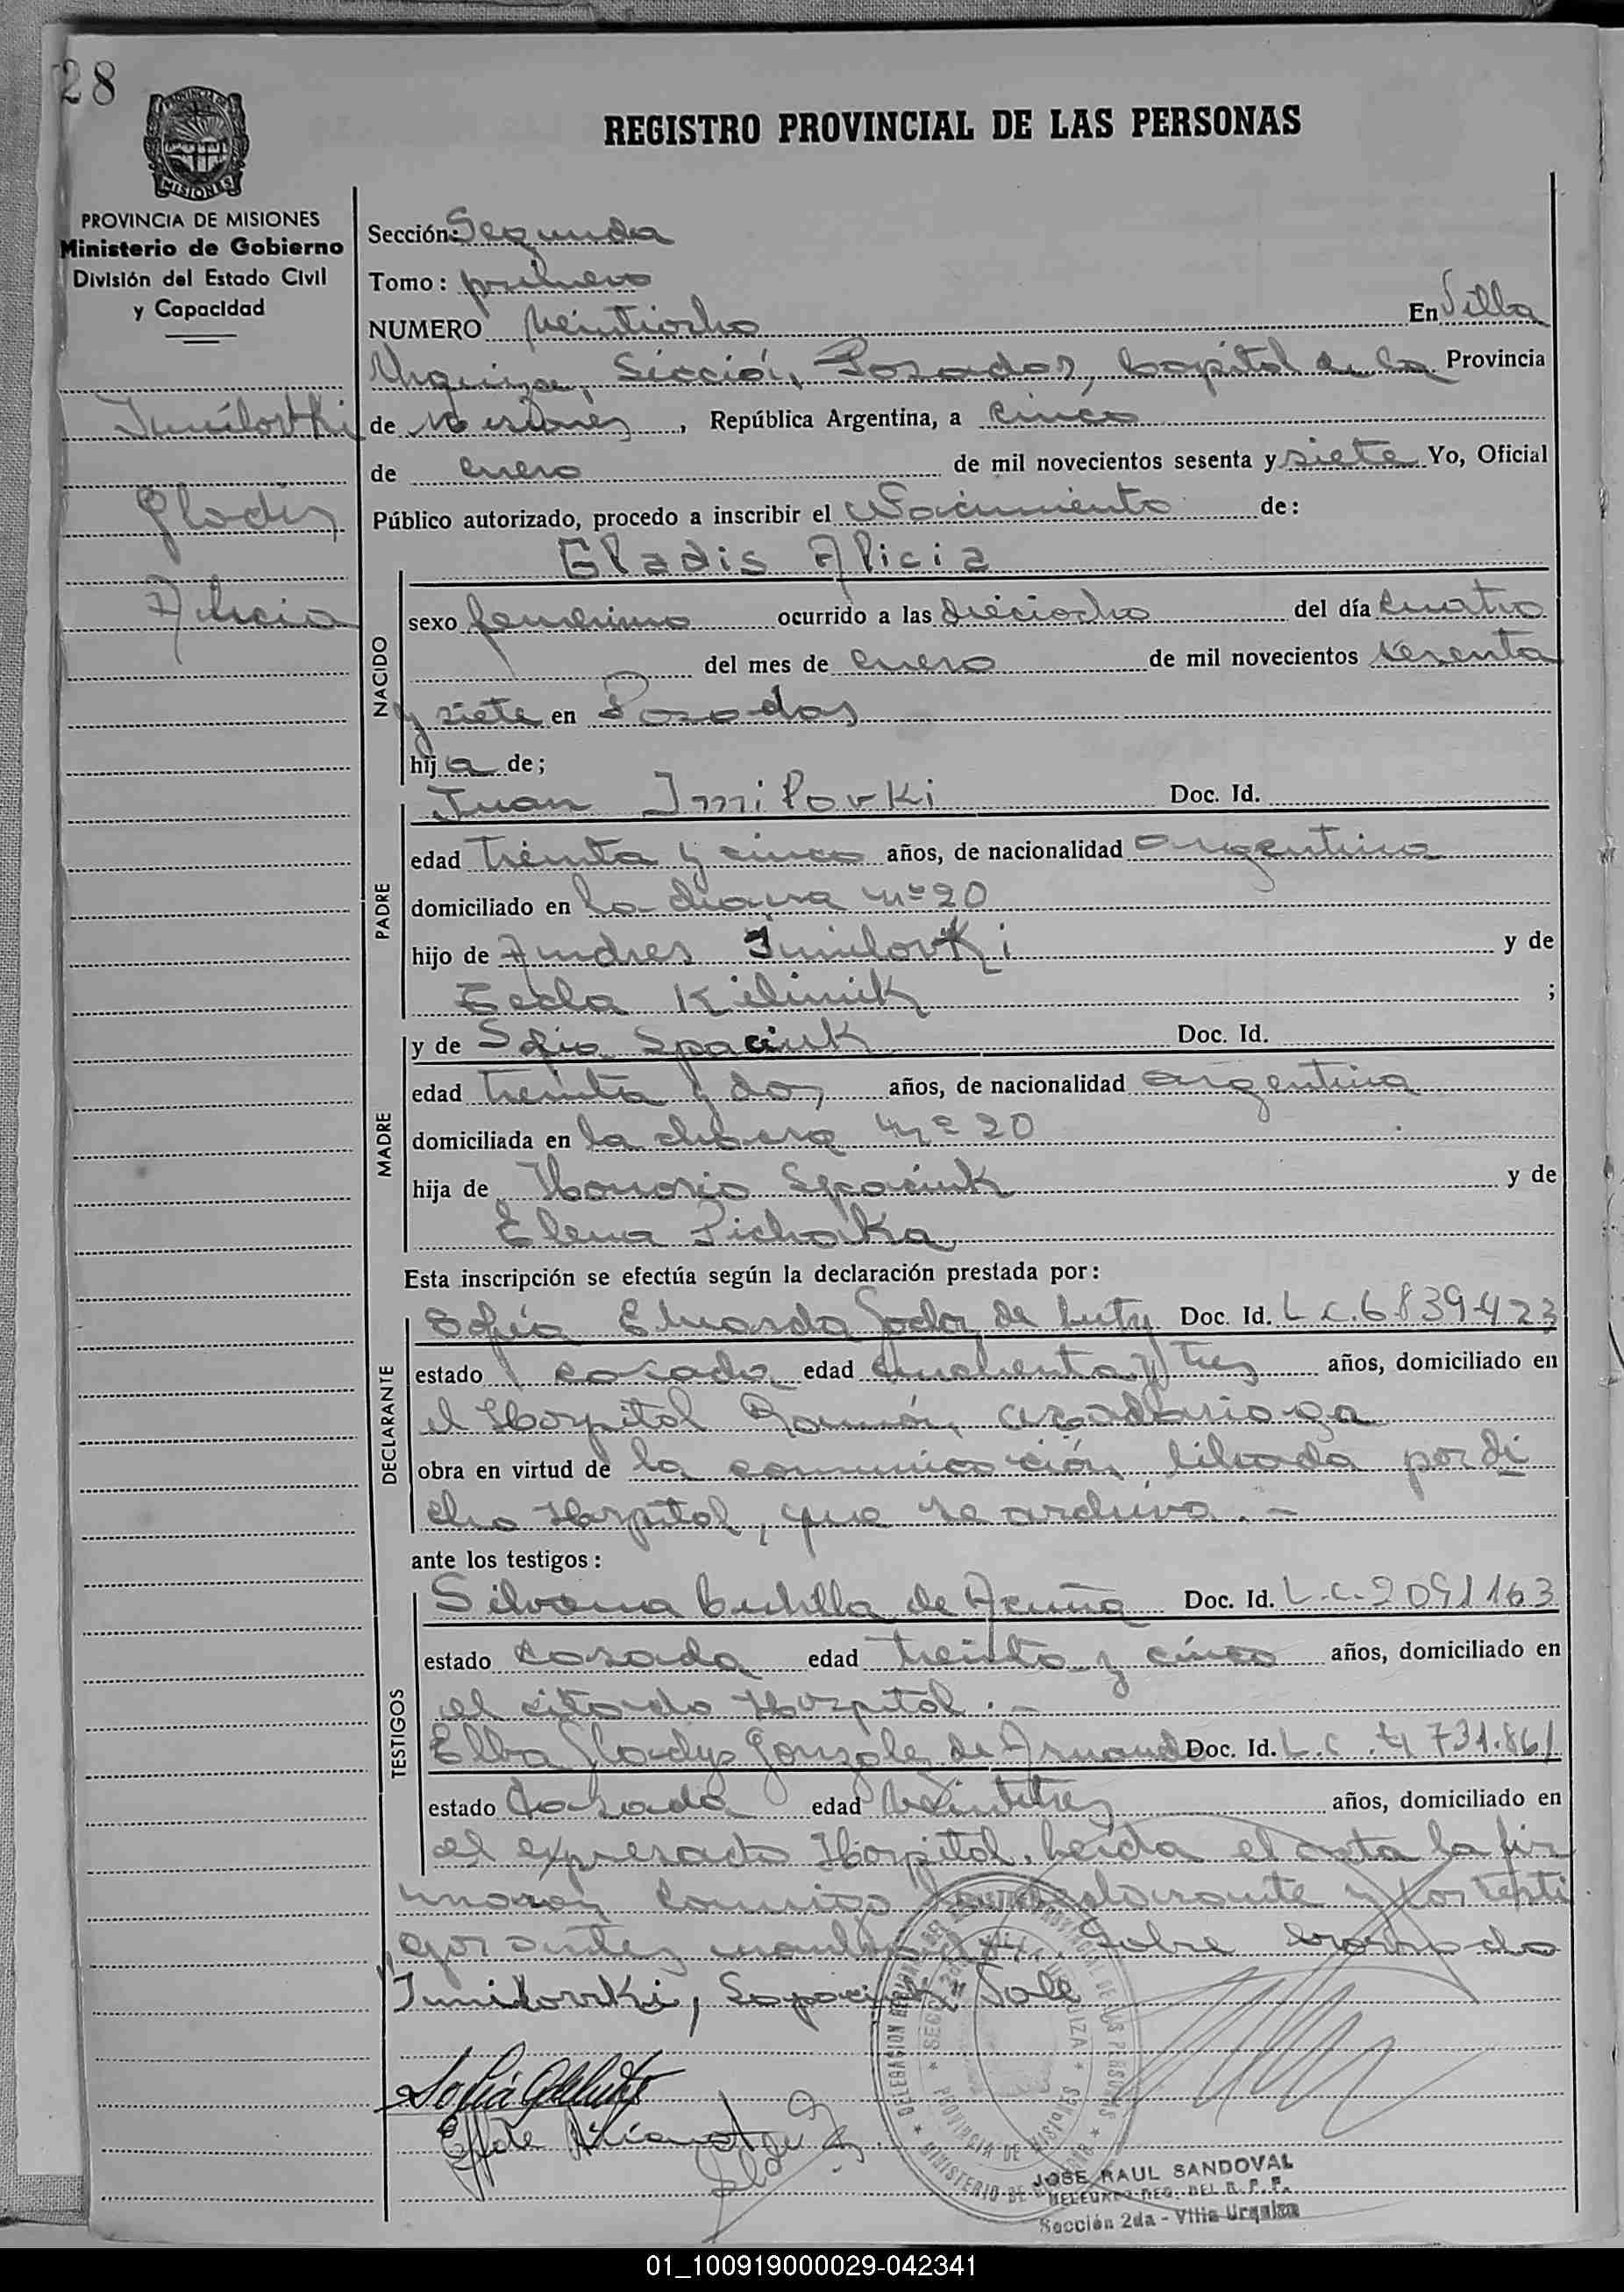 28
PROVINCIA DE MISIONES
Ministerio de Gobierno
División del Estado Civil
y Capacidad
Imilovki
Gladis
Alicia
REGISTRO PROVINCIAL DE LAS PERSONAS
Sección: Segunda
Tomo: primero
NUMERO Veintiocho En Villa
Urquiza, Sección, Posadas, Capital de la Provincia
de Misiones, República Argentina, a cinco
de enero de mil novecientos sesenta y siete Yo, Oficial
Público autorizado, procedo a inscribir el Nacimiento de:
NACIDO
Gladis Alicia
sexo femenino ocurrido a las dieciocho del día cuatro
del mes de enero de mil novecientos sesenta
y siete en Posadas
hija de;
PADRE
Juan Imilovki Doc. Id.
edad treinta y cinco años, de nacionalidad argentina
domiciliado en la chacra nº 20
hijo de Andres Imilovki y de
Tecla Kilinik ;
MADRE
y de Sofia Spaciuk Doc. Id.
edad treinta y dos años, de nacionalidad argentina
domiciliada en la chacra nº 20
hija de Honorio Spaciuk y de
Elena Pichoka
Esta inscripción se efectúa según la declaración prestada por:
DECLARANTE
Sofía Eduarda de Doc. Id. L.C. 6839423
estado casada edad cuarenta y tres años, domiciliado en
el Hospital Ramón Azadlarioga
obra en virtud de la comunicación, librada por di
cho Hospital, que se archiva.-
ante los testigos:
TESTIGOS
Silvana de Acuña Doc. Id. L.C. 2091163
estado casada edad treinta y cinco años, domiciliado en
el citado Hospital.-
Elba Gladys Gonzále de Doc. Id. L.C. 4731.861
estado casada edad Veintitres años, domiciliado en
el expresado Hospital. Leida el acta la fir
maron conmigo declarante y los testi
gos antes Sobre borrado
Imilovki, Spaciuk "Vale
DELEGACION PROVINCIAL DE LAS PERSONAS
PROVINCIA DE MISIONES
MINISTERIO DE GOBIERNO
JOSE RAUL SANDOVAL
DELEGADO REG. DEL R. P. P.
Sección 2da - Villa Urquiza
01_100919000029-042341